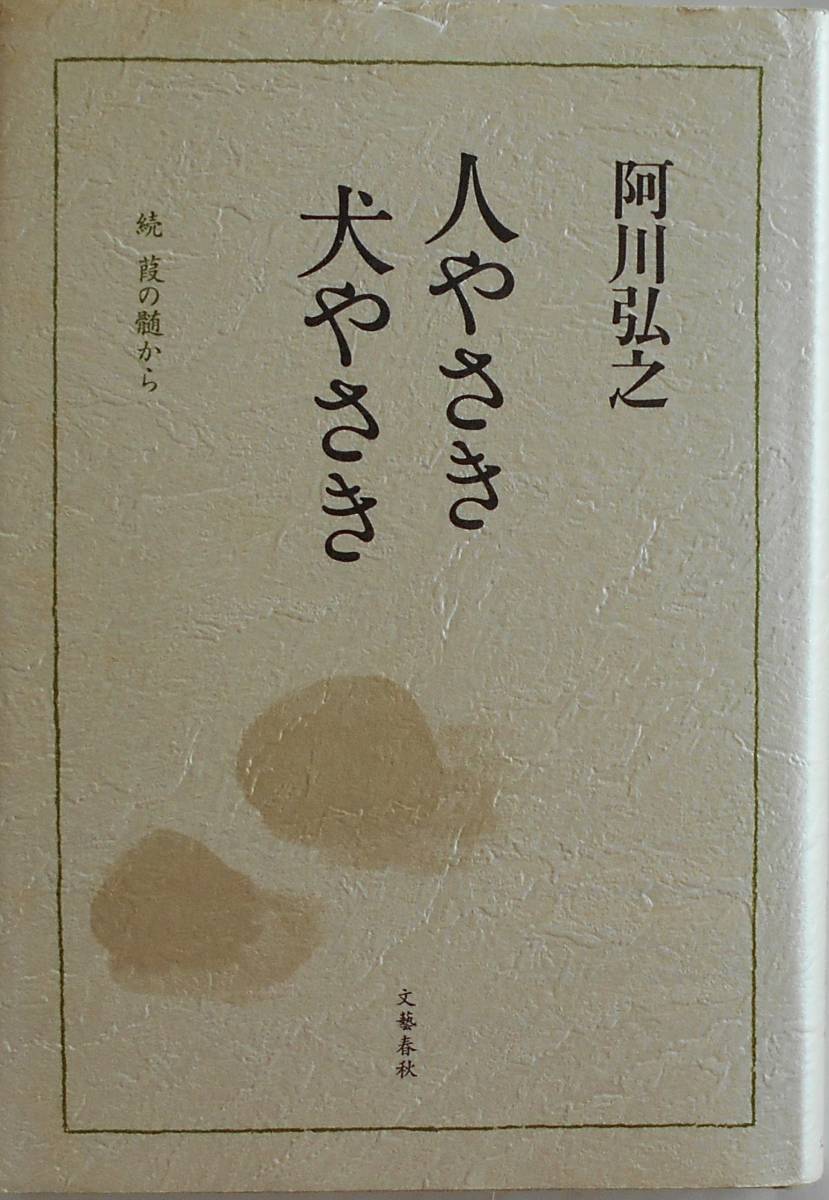 阿川弘之
人やさき
犬やさき
続 葭の髄から
文藝春秋